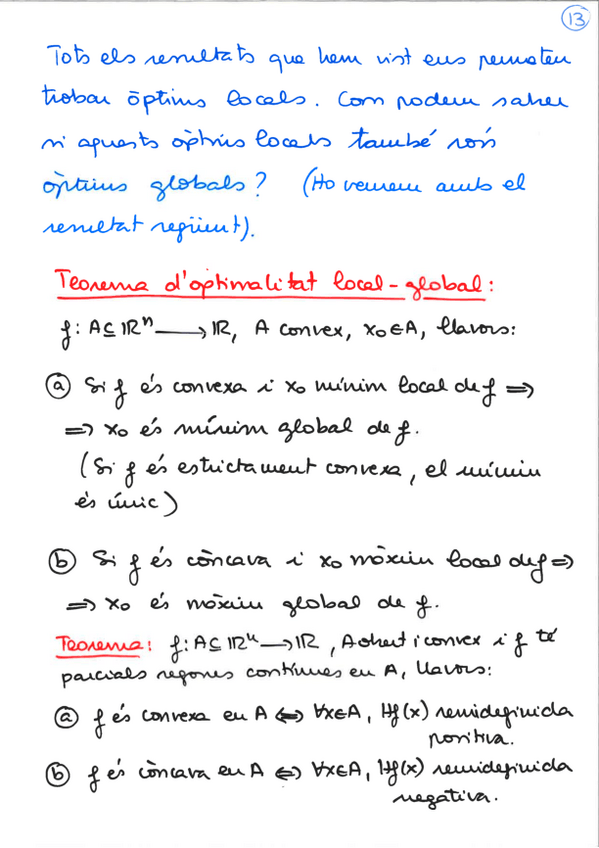 13
Tots els resultats que hem vist ens permeten
trobar òptims locals. Com podem saber
si aquests òptims locals també són
òptims globals? (Ho veurem amb el
resultat següent).
Teorema d'optimalitat local-global:
f: A ⊆ ℝⁿ ⟶ ℝ, A convex, x₀ ∈ A, llavors:
ⓐ Si f és convexa i x₀ mínim local de f ⇒
⇒ x₀ és mínim global de f.
(Si f és estrictament convexa, el mínim
és únic)
ⓑ Si f és còncava i x₀ màxim local de f ⇒
⇒ x₀ és màxim global de f.
Teorema: f: A ⊆ ℝⁿ ⟶ ℝ, A obert i convex i f té
parcials segones contínues en A, llavors:
ⓐ f és convexa en A ⇔ ∀x∈A, Hf(x) semidefinida
positiva.
ⓑ f és còncava en A ⇔ ∀x∈A, Hf(x) semidefinida
negativa.